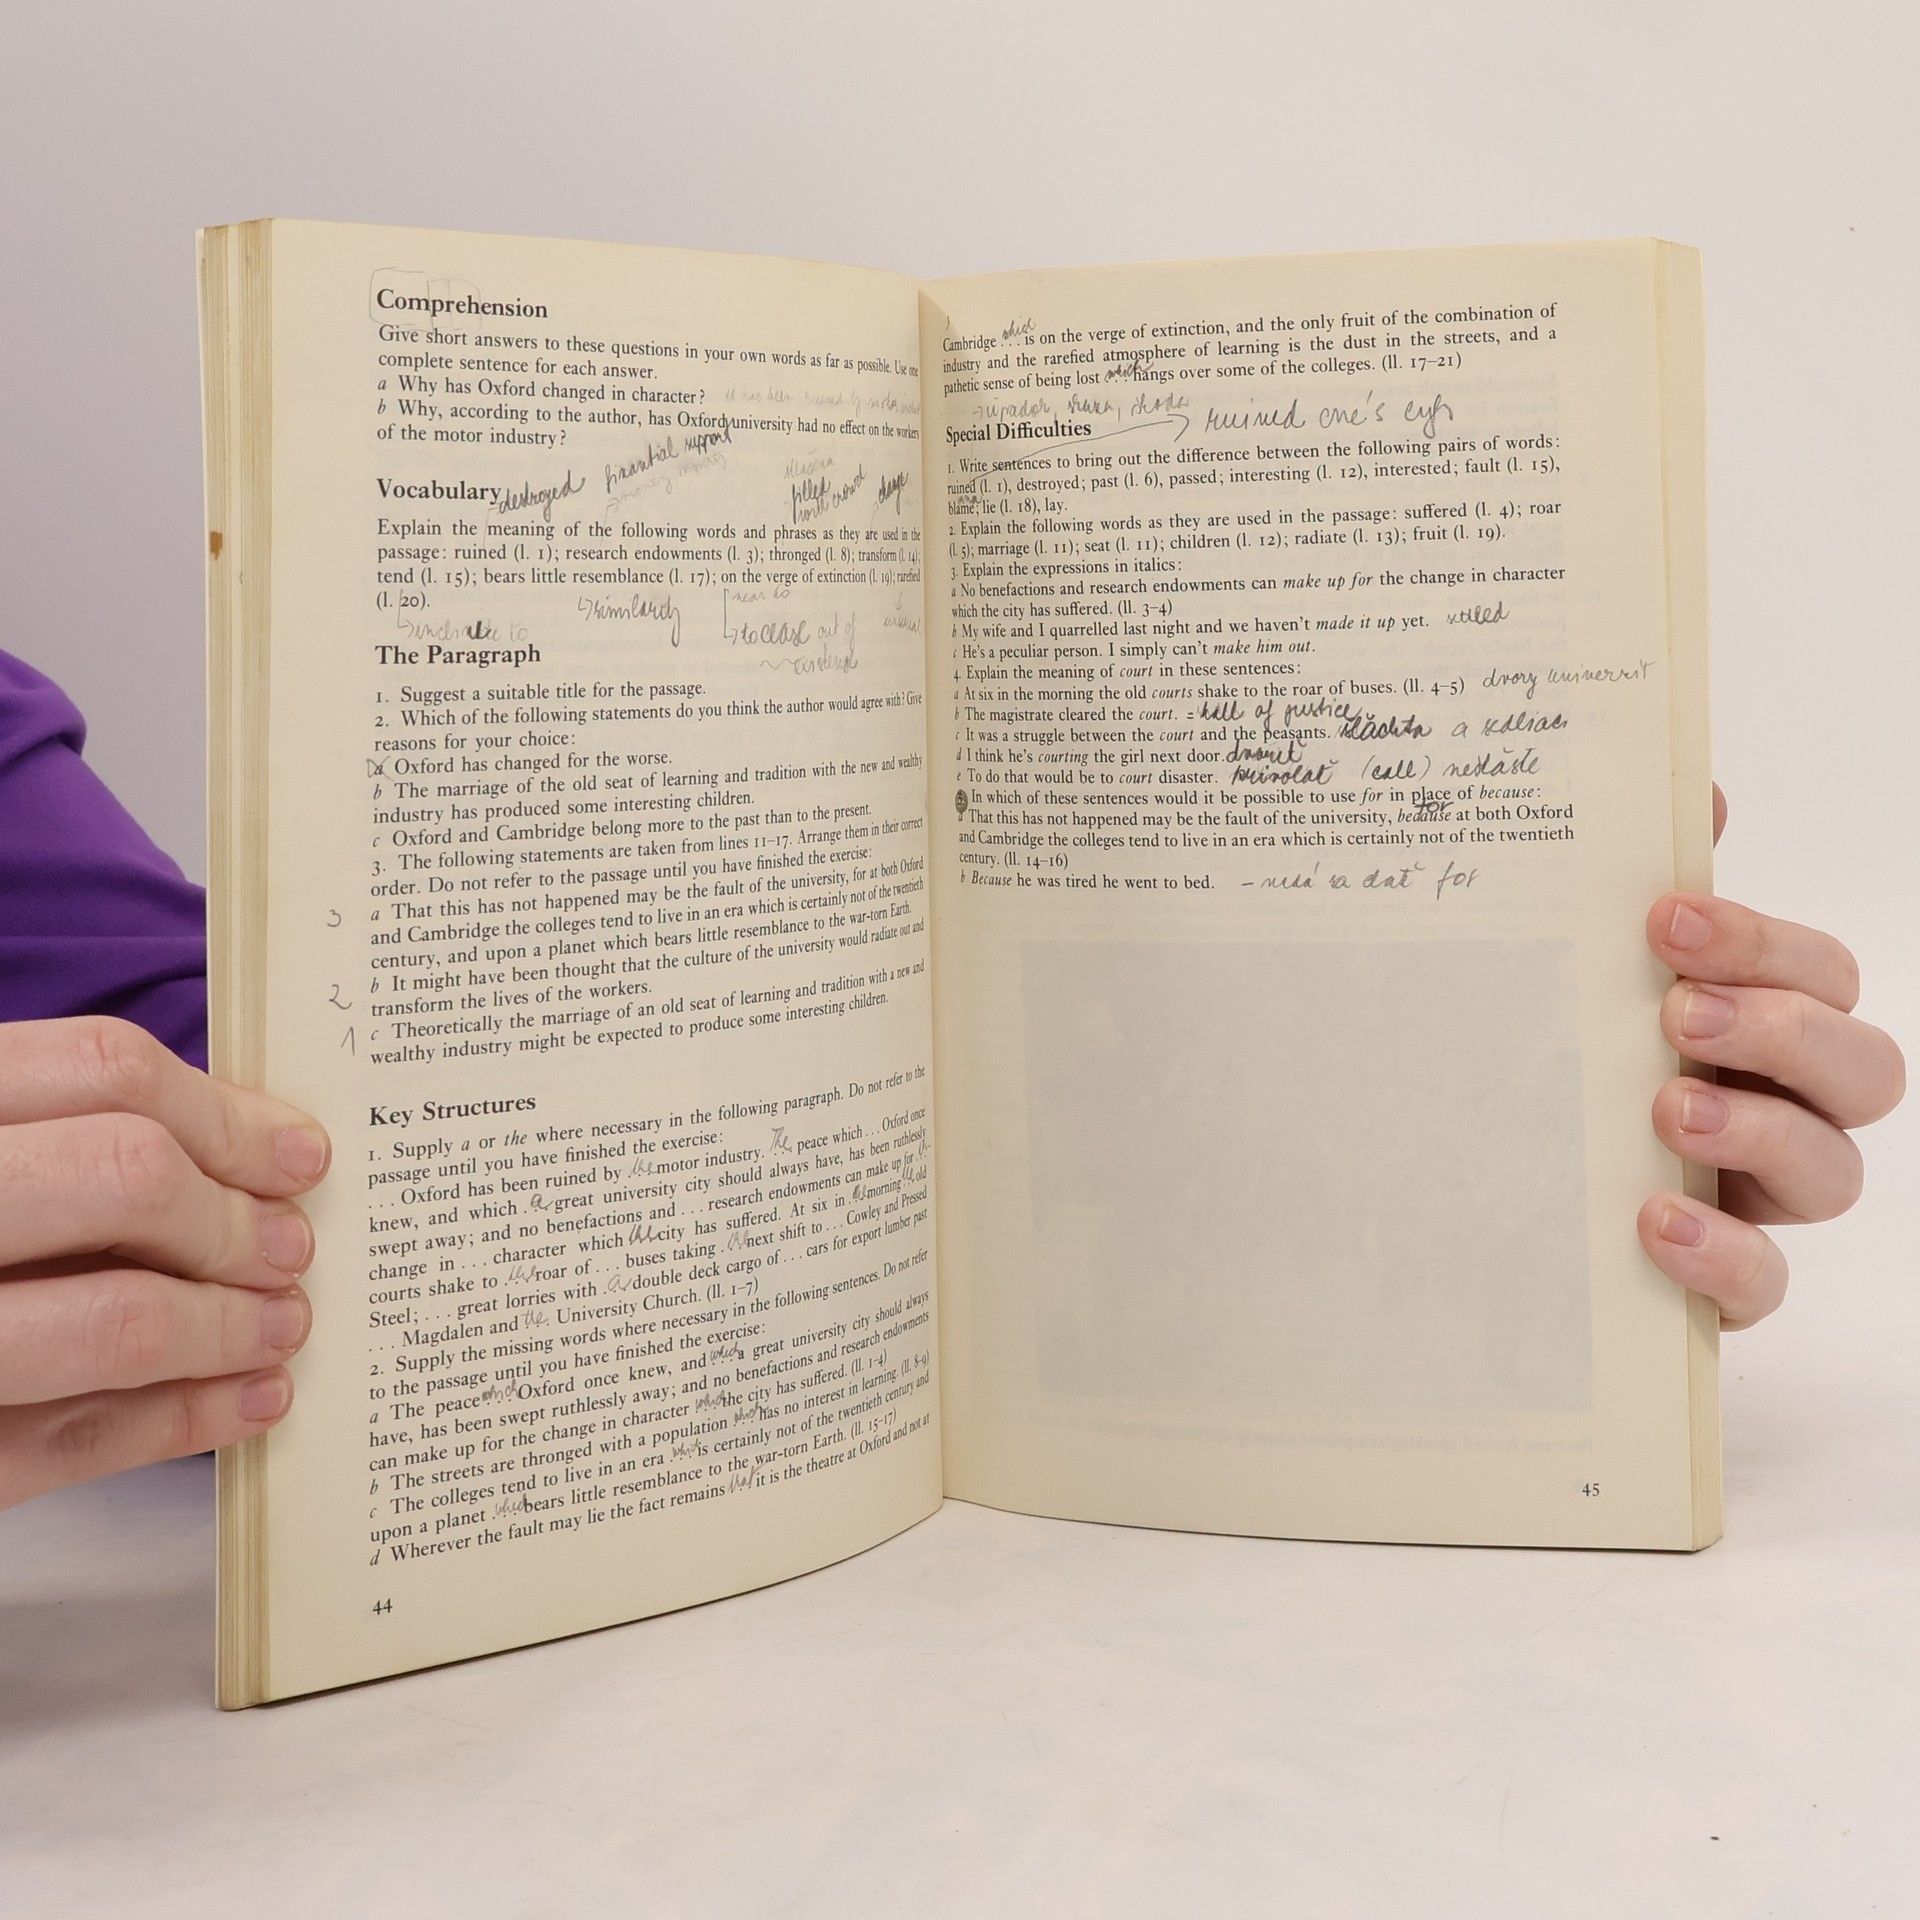 Comprehension
Give short answers to these questions in your own words as far as possible. Use one
complete sentence for each answer.
a Why has Oxford changed in character?
b Why, according to the author, has Oxford university had no effect on the workers
of the motor industry?
financial support
destroyed
filled
with crowd
change
Vocabulary
Explain the meaning of the following words and phrases as they are used in the
passage: ruined (l. 1); research endowments (l. 3); thronged (l. 8); transform (l. 14);
tend (l. 15); bears little resemblance (l. 17); on the verge of extinction (l. 19); rarefied
(l. 20).
near to
similarity
out of
The Paragraph
1. Suggest a suitable title for the passage.
2. Which of the following statements do you think the author would agree with? Give
reasons for your choice:
a Oxford has changed for the worse.
b The marriage of the old seat of learning and tradition with the new and wealthy
industry has produced some interesting children.
c Oxford and Cambridge belong more to the past than to the present.
3. The following statements are taken from lines 11–17. Arrange them in their correct
order. Do not refer to the passage until you have finished the exercise:
3 a That this has not happened may be the fault of the university, for at both Oxford
and Cambridge the colleges tend to live in an era which is certainly not of the twentieth
century, and upon a planet which bears little resemblance to the war-torn Earth.
2 b It might have been thought that the culture of the university would radiate out and
transform the lives of the workers.
1 c Theoretically the marriage of an old seat of learning and tradition with a new and
wealthy industry might be expected to produce some interesting children.
Key Structures
1. Supply a or the where necessary in the following paragraph. Do not refer to the
passage until you have finished the exercise:
... Oxford has been ruined by the motor industry. The peace which ... Oxford once
knew, and which a great university city should always have, has been ruthlessly
swept away; and no benefactions and ... research endowments can make up for the
change in ... character which the city has suffered. At six in the morning the old
courts shake to the roar of ... buses taking the next shift to ... Cowley and Pressed
Steel; ... great lorries with a double deck cargo of ... cars for export lumber past
... Magdalen and the University Church. (ll. 1–7)
2. Supply the missing words where necessary in the following sentences. Do not refer
to the passage until you have finished the exercise:
a The peace which Oxford once knew, and which a great university city should always
have, has been swept ruthlessly away; and no benefactions and research endowments
can make up for the change in character which the city has suffered. (ll. 1–4)
b The streets are thronged with a population which has no interest in learning. (ll. 8–9)
c The colleges tend to live in an era which is certainly not of the twentieth century and
upon a planet which bears little resemblance to the war-torn Earth. (ll. 15–17)
d Wherever the fault may lie the fact remains that it is the theatre at Oxford and not at
44
Cambridge which is on the verge of extinction, and the only fruit of the combination of
industry and the rarefied atmosphere of learning is the dust in the streets, and a
pathetic sense of being lost which hangs over some of the colleges. (ll. 17–21)
ruined one's eyes
Special Difficulties
1. Write sentences to bring out the difference between the following pairs of words:
ruined (l. 1), destroyed; past (l. 6), passed; interesting (l. 12), interested; fault (l. 15),
blame; lie (l. 18), lay.
2. Explain the following words as they are used in the passage: suffered (l. 4); roar
(l. 5); marriage (l. 11); seat (l. 11); children (l. 12); radiate (l. 13); fruit (l. 19).
3. Explain the expressions in italics:
a No benefactions and research endowments can make up for the change in character
which the city has suffered. (ll. 3–4)
b My wife and I quarrelled last night and we haven't made it up yet. settled
c He's a peculiar person. I simply can't make him out.
4. Explain the meaning of court in these sentences:
a At six in the morning the old courts shake to the roar of buses. (ll. 4–5) dvory univerzit
b The magistrate cleared the court. = hall of justice
c It was a struggle between the court and the peasants. šlachta a sedliaci
d I think he's courting the girl next door. dvoriť
e To do that would be to court disaster. privolať (call) nešťastie
5. In which of these sentences would it be possible to use for in place of because:
for
a That this has not happened may be the fault of the university, because at both Oxford
and Cambridge the colleges tend to live in an era which is certainly not of the twentieth
century. (ll. 14–16)
b Because he was tired he went to bed. – nedá sa dať for
45